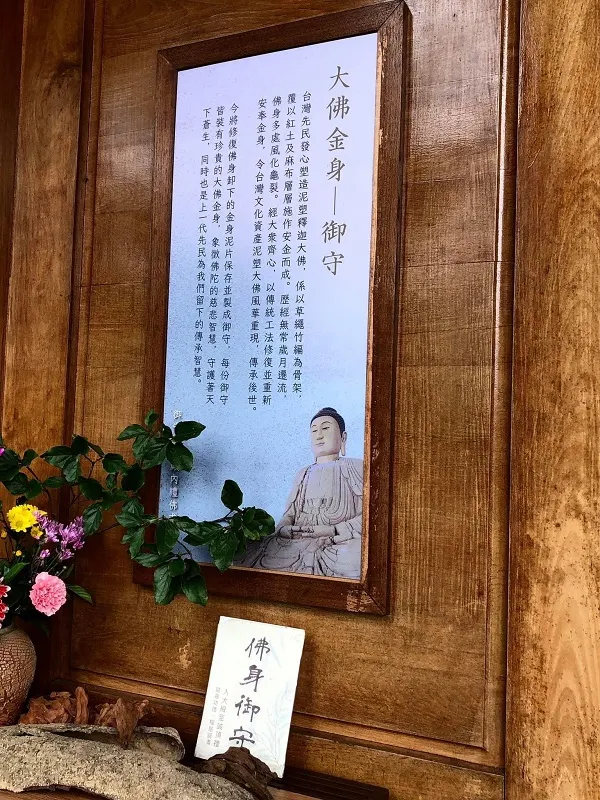 大佛金身—御守
台灣先民發心塑造泥塑釋迦大佛，係以草繩竹編為骨架，
覆以紅土及麻布層層施作安金而成。歷經無常歲月還流，
佛身多處風化龜裂。經大衆齊心，以傳統工法修復並重新
安奉金身，令台灣文化資產泥塑大佛風華重現，傳承後世。
今將修復佛身卸下的金身泥片保存並製成御守，每份御守
皆裝有珍貴的大佛金身，象徵佛陀的慈悲智慧，守護著天
下蒼生，同時也是上一代先民為我們留下的傳承智慧。
御
內禮佛
佛身御守
入大殿至誠頂禮